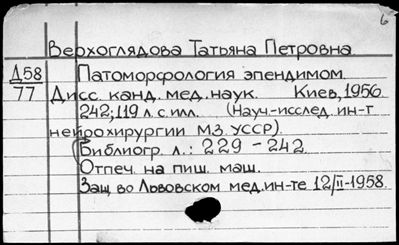 6
Верхоглядова Татьяна Петровна
Д58 Патоморфология эпендимом.
77 Дисс. канд. мед. наук. Киев, 1956
242; 119 л. с илл. (Науч-исслед. ин-т
нейрохирургии МЗ УССР).
(Библиогр. л.: 229 - 242
Отпеч. на пиш. маш.
Защ. во Львовском мед. ин-те 12/II-1958.